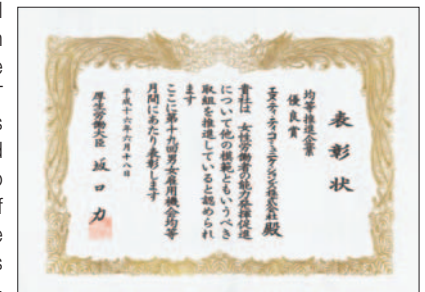 表彰状
均等推進企業
優良賞
エヌ・ティ・ティ・コミュニケーションズ株式会社 殿
貴社は 女性労働者の能力発揮促進
について他の模範ともいうべき
取組を推進していると認められ
ます
ここに第十九回男女雇用機会均等
月間にあたり表彰します
平成十六年六月十八日
厚生労働大臣 坂口 力